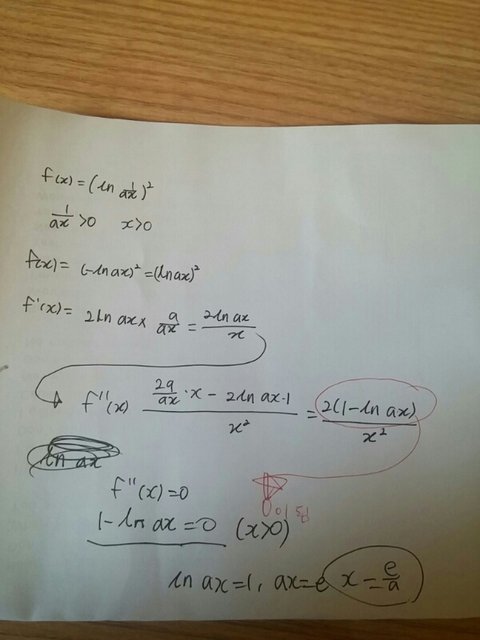 f(x) = (ln 1/ax)²
1/ax >0 x>0
f(x) = (-ln ax)² = (ln ax)²
f'(x) = 2 ln ax × a/ax = 2 ln ax/x
f''(x) (2a/ax · x - 2 ln ax · 1)/x² = 2(1 - ln ax)/x²
ln ax
f''(x) = 0
1 - ln ax = 0 (x>0)
ln ax = 1, ax = e x = e/a